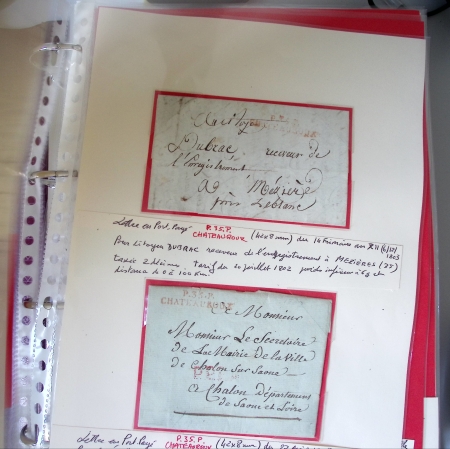 P.35.P.
CHATEAUROUX
Au citoyen
Dubrac receveur de
l'Enregistrement
a Mézière
près Leblanc
Lettre en Port Payé P.35.P. CHATEAUROUX (42x8mm) du 14 Frimaire an XII (6/12/1803
Pour Citoyen DUBRAC receveur de l'enregistrement à MEZIERES
Taxée 2 décimes Tarif du 20 juillet 1802 poids inférieur à 6g et
distance 100 kms
P.35.P.
CHATEAUROUX
A Monsieur
Monsieur Le Secretaire
de La Mairie de la Ville
de Chalon sur Saone
a Chalon Département
de Saone et Loire
Lettre en Port Payé P.35.P. CHATEAUROUX (42x8mm) du